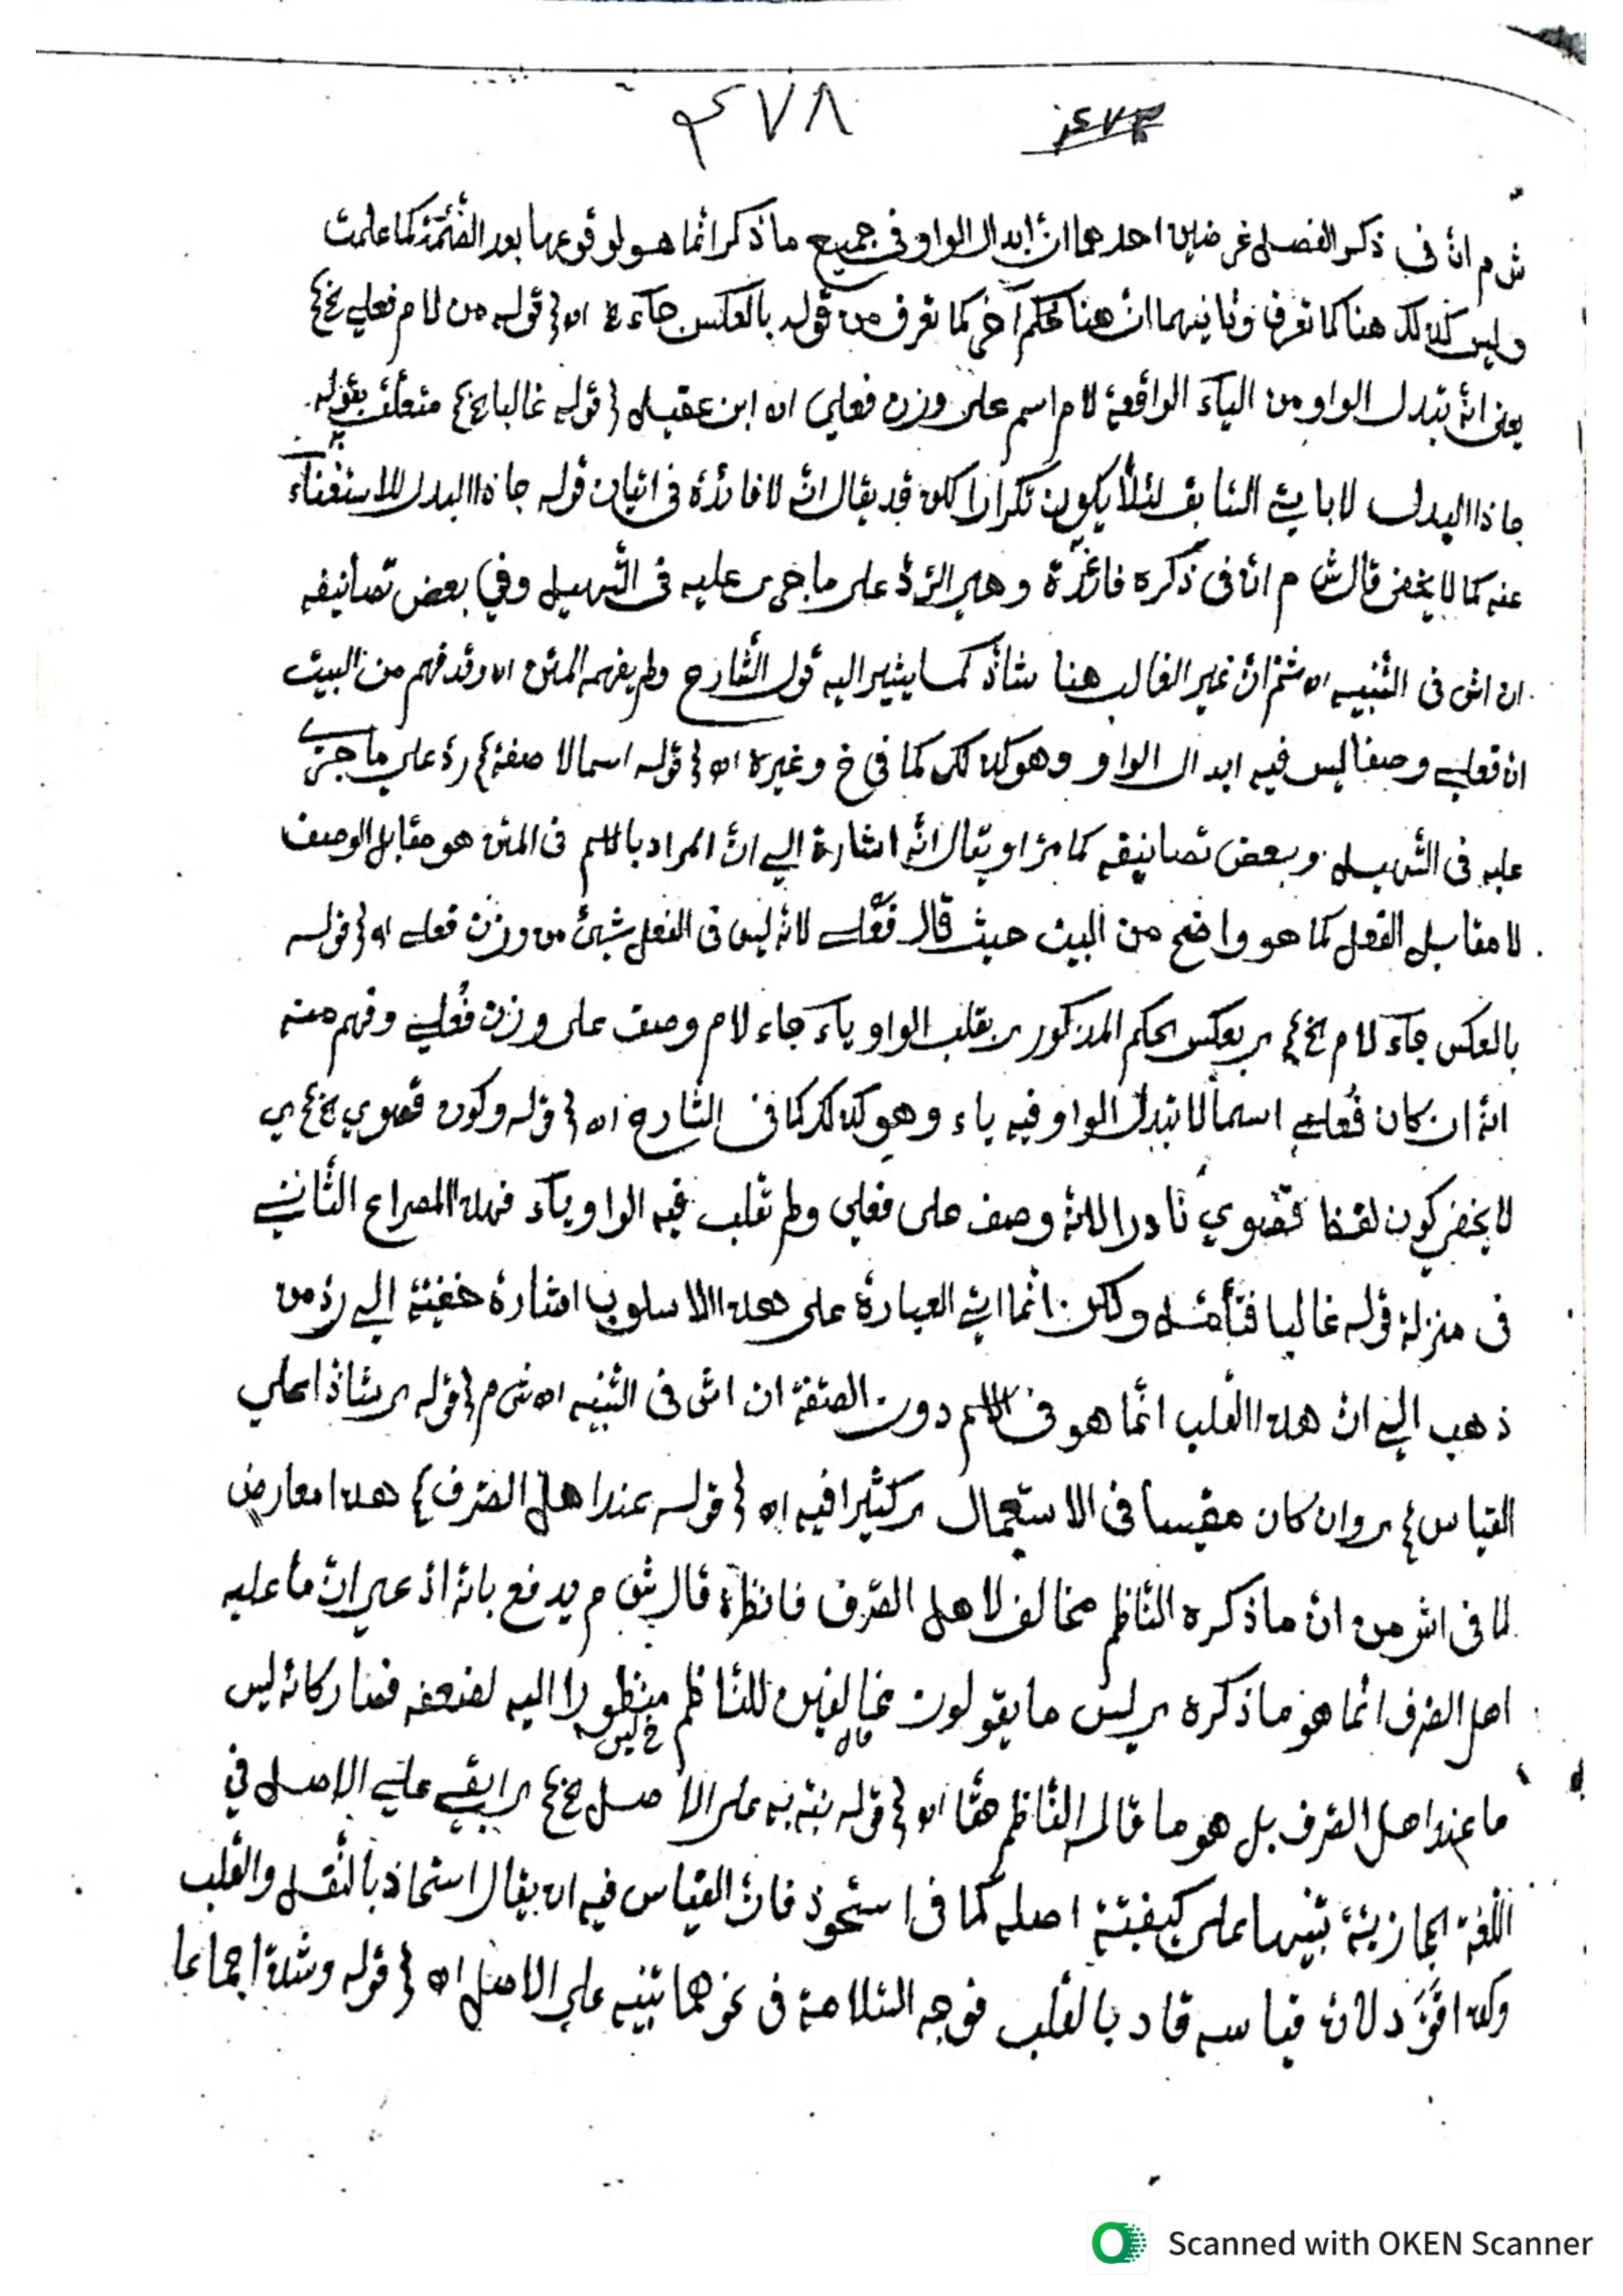 ٤٧٨
ش م انّ فى ذكر الفصل غرضين احدهما انّ ابدال الواو فى جميع ما ذكر انّما هو لوقوعها بعد الضّمّة كما علمت
وليس كذلك هنا كما تعرف وثانيهما انّ هنا حكم آخر كما تعرف من قوله بالعكس جآء ع اه { قوله من لام فعلى الخ }
يعنى انّه تبدل الواو من اليآء الواقعة لام اسم على وزن فعلى اه ابن عقيل { قوله غالبا الخ } متعلّق بقوله
جا ذا البدل لا باتى السّابق لئلّا يكون تكرارا لكن قد يقال انّه لا فائدة فى اتيان قوله جا ذا البدل للاستغنآء
عنه كما لا يخفى قال ش م انّ فى ذكره فائدة وهى الرّدّ على ما جرى عليه فى التّسهيل وفي بعض تصانيفه
ان اش فى التّنبيه اه ثمّ انّ غير الغالب هنا شاذّ كما يشير اليه قول الشّارح ولم يفهمه المتن اه وقد فهم من البيت
ان فعلى وصفا ليس فيه ابدال الواو وهو كذلك كما فى خ وغيره اه { قوله اسما لا صفة } ردّ على ما جرى
عليه فى التّسهيل وبعض تصانيفه كما مرّ او يقال انّه اشارة الى انّ المراد بالاسم فى المتن هو مقابل الوصف
لا مقابل الفعل كما هو واضح من البيت حيث قال فَعْلى لانّه ليس فى الفعل شيئ من وزن فعلى اه { قوله
بالعكس جآء لام الخ } اى بعكس الحكم المذكور اى بقلب الواو يآء جاء لام وصف على وزن فُعلى وفهم منه
انّه ان كان فُعلى اسما لا تبدل الواو فيه ياء وهو كذلك كما فى الشّارح اه { قوله وكون قصوي الخ } اي
لا يخفى كون لفظ قصوي نادرا لانّه وصف على فعلى ولم تقلب فيه الواو يآء فهذا المصراع الثّاني
فى منزلة قوله غالبا فتأمّل ولكن انّما اتى العبارة على هذا الاسلوب اشارة خفيّة الى ردّ من
ذهب الى انّ هذا القلب انّما هو فى الاسم دون الصّفة ان اش فى التّنبيه اه ش م { قوله اى شاذا على
القياس } اى وان كان مقيسا فى الاستعمال اى كثيرا فيه اه { قوله عند اهل الصّرف } هذا معارض
لما فى اش من انّ ما ذكره النّاظم مخالف لاهل الصّرف فانظره قال ش م يدفع بانّه ادّعى انّ ما عليه
اهل الصّرف انّما هو ما ذكره اى ليس ما يقولون مخالفين للنّاظم منظورا اليه لضعفه فصار كانّه ليس
قال خ ليس
ما عند اهل الصّرف بل هو ما قاله النّاظم هنا اه { قوله نبّه به على الاصل الخ } اى ابقي على الاصل في
اللّغة الحجازيّة تنبيها على كيفيّة اصله كما فى استحوذ فانّ القياس فيه ان يقال استحاذ بالنّقل والقلب
وكذا قَوَد لانّ قياسه قاد بالقلب فوجه السّلامة فى نحوهما تنبيه على الاصل اه { قوله وشذّ اجماعا
Scanned with OKEN Scanner